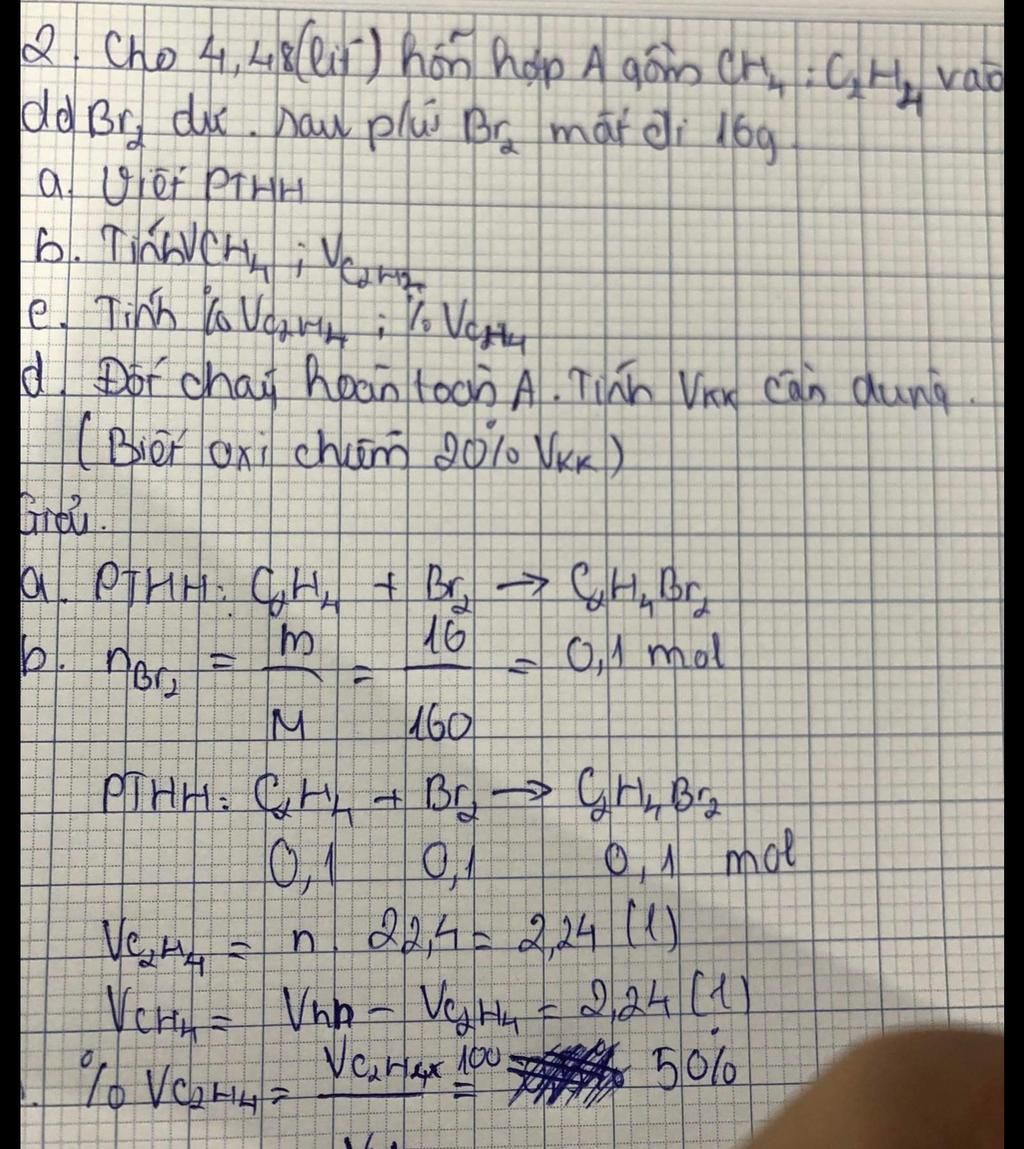 2. Cho 4,48(lít) hỗn hợp A gồm CH₄ ; C₂H₄ vào
dd Br₂ dư. Sau p/ứ Br₂ mất đi 16g
a. Viết PTHH
b. Tính VCH₄ ; VC₂H₂
c. Tính %VC₂H₄ ; %VCH₄
d. Đốt cháy hoàn toàn A. Tính VKK cần dùng.
(Biết oxi chiếm 20% VKK)
Giải.
a. PTHH: C₂H₄ + Br₂ → C₂H₄Br₂
b. nBr₂ = m/M = 16/160 = 0,1 mol
PTHH: C₂H₄ + Br₂ → C₂H₄Br₂
0,1 0,1 0,1 mol
VC₂H₄ = n. 22,4 = 2,24 (l)
VCH₄ = Vhh − VC₂H₄ = 2,24 (l)
% VC₂H₄ = VC₂H₄ x 100 = 50%